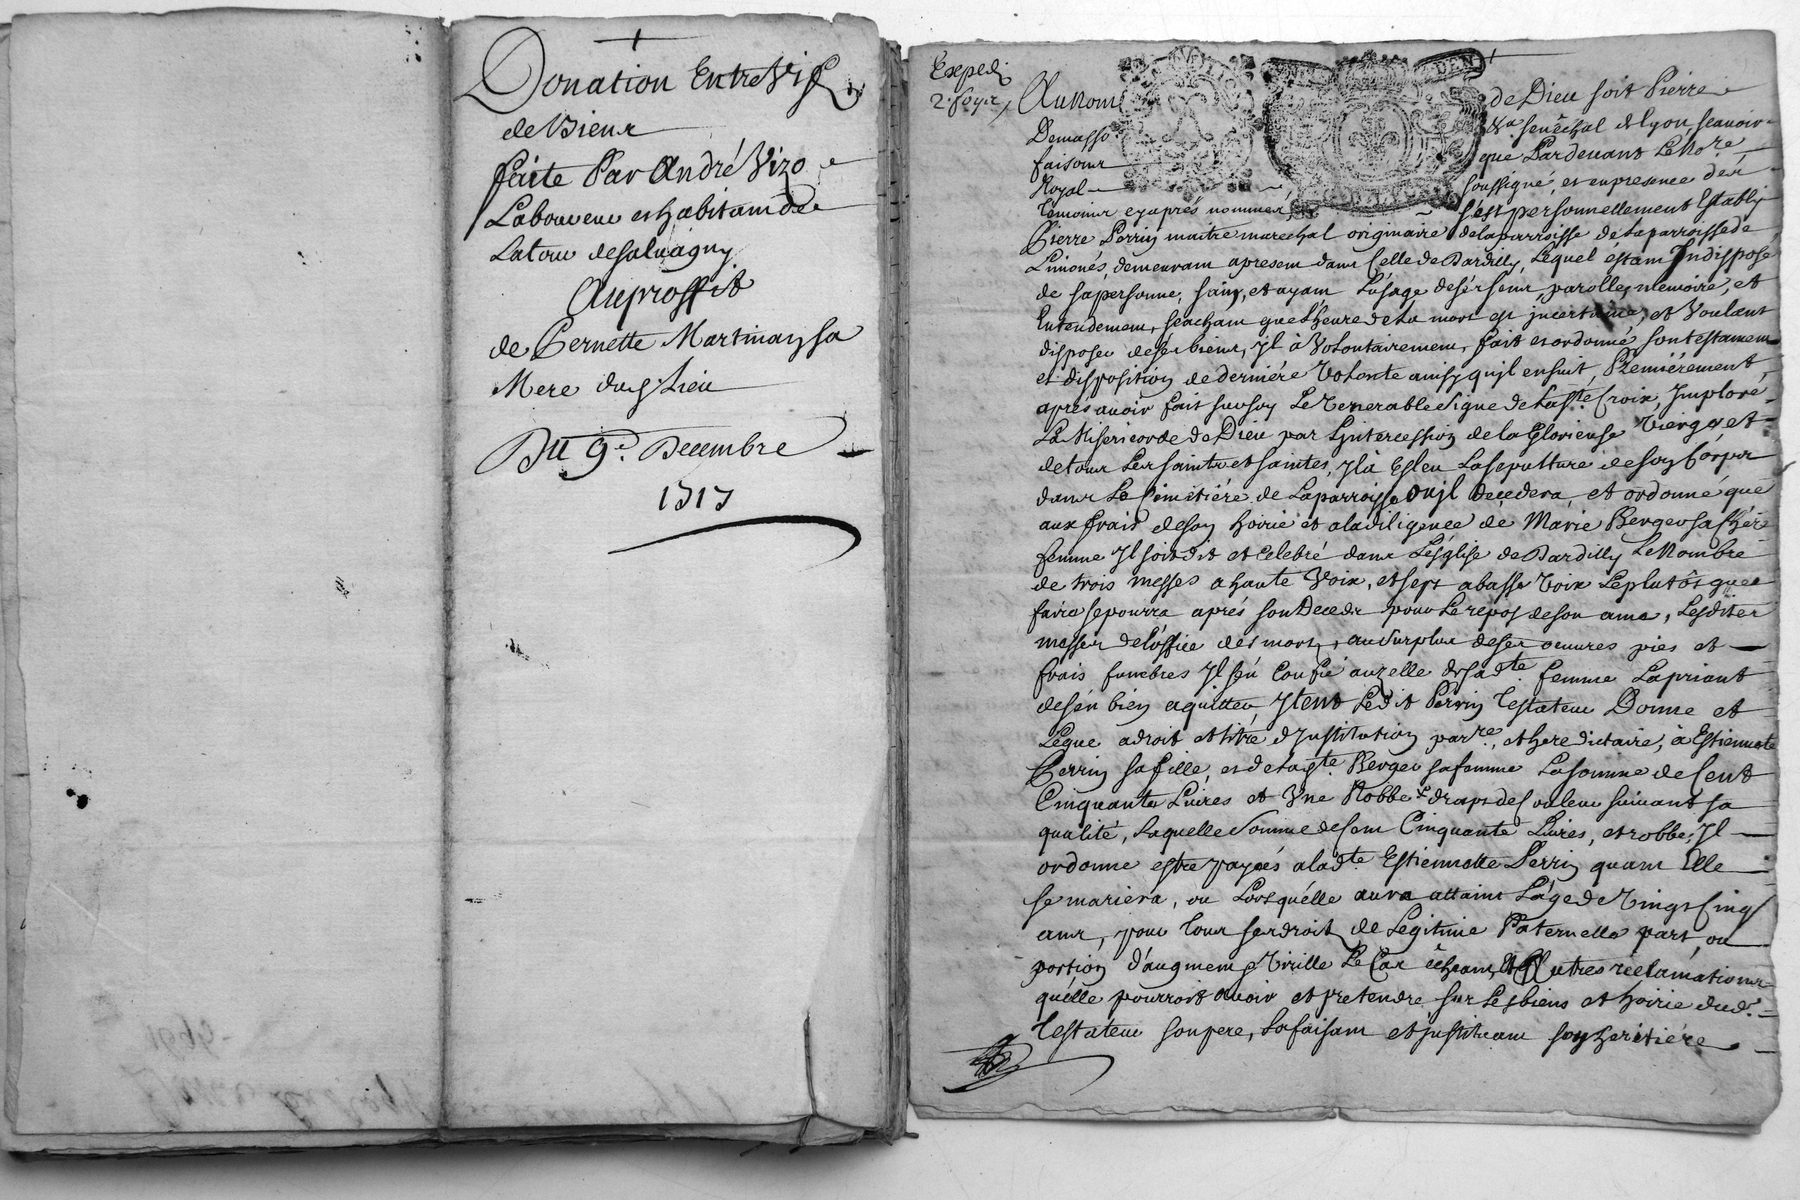 Donation Entre Vifs
de Biens
faite Par André Vizo
Laboureur et habitant de
Latour desalvagny
Auproffit
de Pernette Martinay sa
Mere dud. Lieu
Du 9e. Decembre
1717
Expedi
2. foys
Au Nom de Dieu soit Pierre
Demasso sénéchal de Lyon, scauoir
faisons que Pardeuant Le Nore
Royal soussigné, et en presence des
temoins cy aprés nommez, s'est personnellement Estably
Pierre Perrin maitre marechal originaire de la parroisse de La parroisse de
Limonés, demeurant apresent dans Celle de Dardilly, Lequel éstant Indisposé
de sapersonne, sain, et ayant L'usage desés sens, parolle, memoire, et
Entendement, scachant que L'heure de La mort est jncertaine, et Voulant
disposer deses biens, Jl à Volontairement, fait et ordonné son testament
et disposition de derniére Volonté ainsy qujl ensuit, Premiérement,
aprés auoir fait sur soy Le Venerable signe de La ste Croix, Imploré
La Misericorde de Dieu par Lintercession de la Glorieuse Vierge, et
de tous Les saints et saintes, Jl à Esleu La sepulture de son Corps
dans Le Cimetiére de La parroisse oujl decedera, et ordonné que
aux frais deson hoirie et aladiligence de Marie Berger sa Chére
femme Jl soit dit et celebré dans L'église de Dardilly Le Nombre
de trois messes ahaute Voix, et sept abasse Voix Leplutôs que
faire sepourra aprés son Decedz pour Le repos deson ame, Lesdites
messes deL'office des morts, au surplus deses oeuures pies et
frais funebres Jl s'en Confie auzelle de sadte. femme Lapriant
desén bien aquitter Jtem Ledit Perrin Testateur Donne et
Légue adroit et titre d'Jnstitution parre, et hereditaire, à Estiennette
Perrin sa fille, et de Ladte. Berger sa femme La somme de Cent
Cinquante Liures et Vne Robbe de draps de Couleur suiuant sa
qualité, Laquelle somme de Cent Cinquante Liures, et robbe, Jl
ordonne estre payées aladte Estiennette Perrin quant Elle
se mariera, ou Lorsquélle aura attaint L'âge de Vingt Cinq
ans, pour tous ses droits de Legitime Paternelle part, ou
portion d'augment, Virille Le Cas écheant, et autres réclamations
quélle pourroit auoir et pretendre sur Les biens et hoirie dud.
Testateur son pere, La faisant et Jnstituant son heritiére